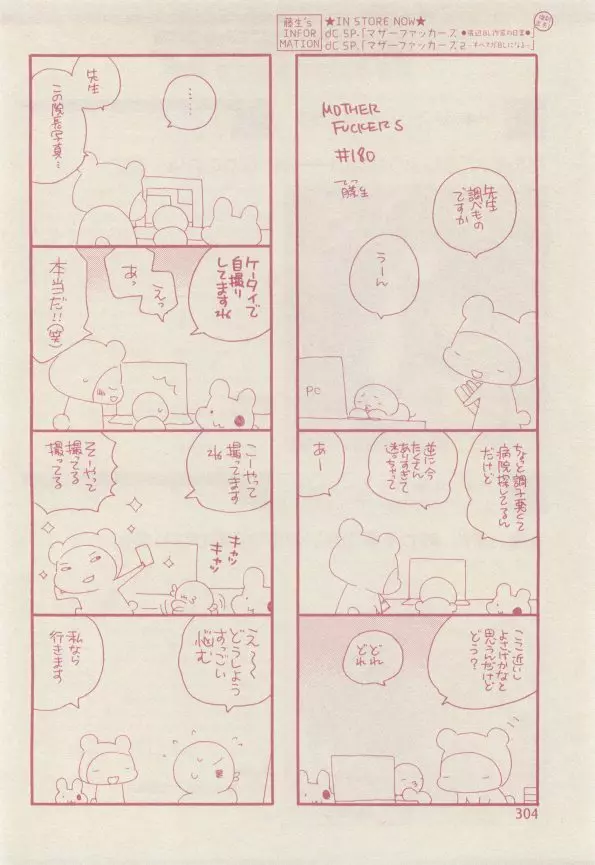 藤生's
INFOR
MATION
★IN STORE NOW★
dC SP.「マザーファッカーズ
dC SP.「マザーファッカーズ2
MOTHER
FUCKERS
#180
藤生
先生
調べもの
ですか
うーん
ちょっと調子悪くて
病院探してるん
だけど
逆に今
たくさん
ありすぎて
迷っちゃって
あー
ここ近いし
よさげかなと
思うんだけど
どう?
どれ
どれ
……
先生
この院長写真…
ケータイで
自撮り
してますね
えっ
あっ
本当だ!!(笑)
こーやって
撮ってます
ね
そーやって
撮ってる
撮ってる
キャッ
キャッ
え〜〜
どうしよう
すっごい
悩む
私なら
行きます
304